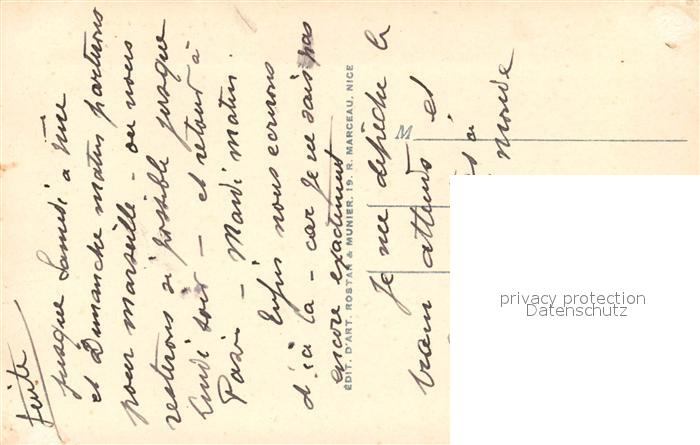 suite
jusque Samedi a Nice
et Dimanche matin partirons
pour marseille - ou nous
resterons si possible jusque
Lundi soir - et retour à
Paris - Mardi matin.
Enfin nous ecrirons
d'ici la - car Je ne sais pas
encore exactement
ÉDIT. D'ART. ROSTAN & MUNIER, 19, R. MARCEAU, NICE
Je me dépèche le
tram attend et
M
monde
privacy protection
Datenschutz